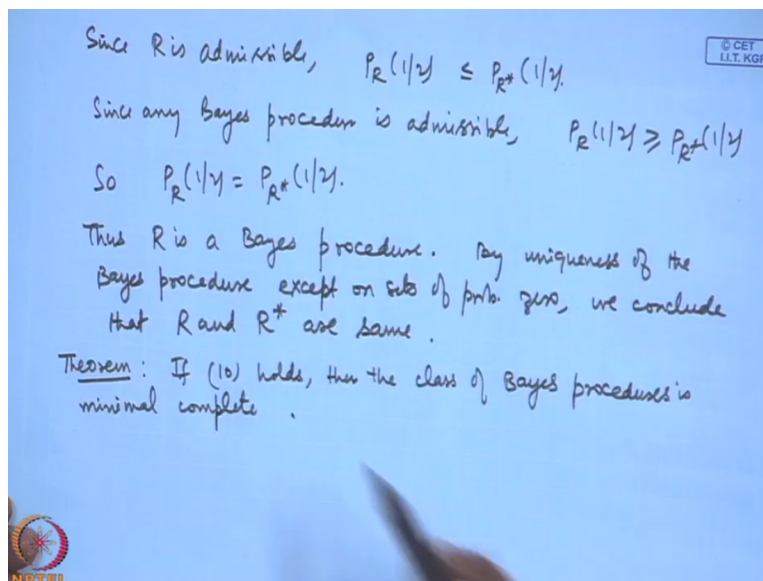 Since R is admissible, P_R(1/2) ≤ P_R*(1/2).
© CET
I.I.T. KGP
Since any Bayes procedure is admissible, P_R(1/2) ≥ P_R*(1/2)
So P_R(1/2) = P_R*(1/2).
Thus R is a Bayes procedure. By uniqueness of the
Bayes procedure except on sets of prob. zero, we conclude
that R and R* are same.
Theorem: If (10) holds, then the class of Bayes procedures is
minimal complete.
NPTEL